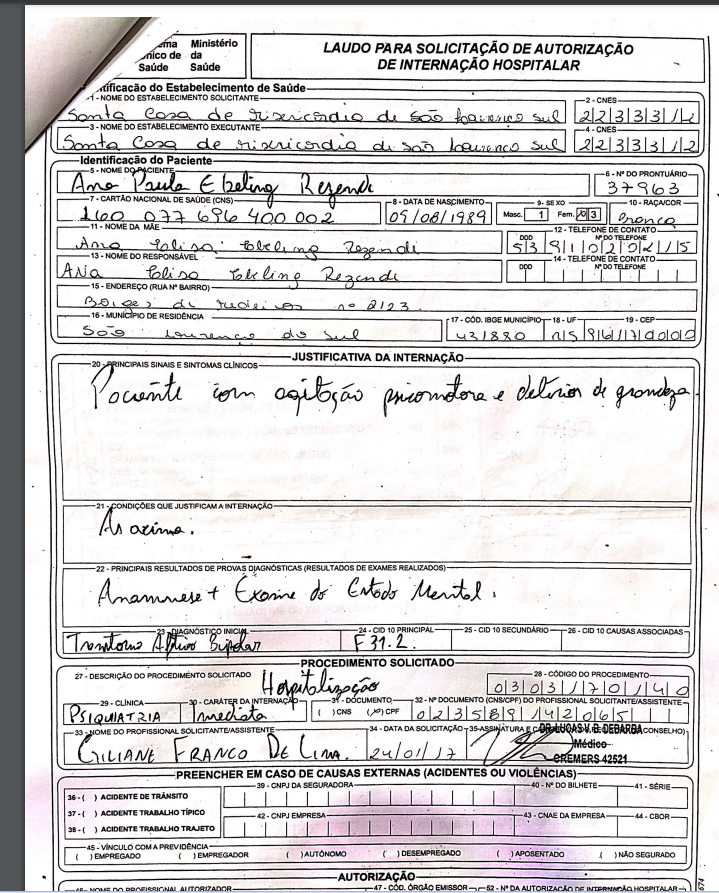 ema Ministério
nico de da
Saúde Saúde
LAUDO PARA SOLICITAÇÃO DE AUTORIZAÇÃO
DE INTERNAÇÃO HOSPITALAR
tificação do Estabelecimento de Saúde
1 - NOME DO ESTABELECIMENTO SOLICITANTE
2 - CNES
Santa Casa de Misericordia de são Lourenco sul
2 2 3 3 3 1 2
3 - NOME DO ESTABELECIMENTO EXECUTANTE
4 - CNES
Santa Casa de Misericordia de são Lourenco sul
2 2 3 3 3 1 2
Identificação do Paciente
5 - NOME DO PACIENTE
6 - Nº DO PRONTUÁRIO
Ana Paula Ebeling Rezende
37963
7 - CARTÃO NACIONAL DE SAÚDE (CNS)
8 - DATA DE NASCIMENTO
9 - SEXO
10 - RAÇA/COR
160 077 696 400 002
09/08/1989
Masc. 1 Fem. 3
Branca
11 - NOME DA MÃE
12 - TELEFONE DE CONTATO
DDD Nº DO TELEFONE
Ana Elisa Ebeling Rezendi
5 3 9 1 0 2 0 2 1 5
13 - NOME DO RESPONSÁVEL
14 - TELEFONE DE CONTATO
DDD Nº DO TELEFONE
ANA Elisa Ebeling Rezendi
15 - ENDEREÇO (RUA Nº BAIRRO)
Borges de medeiros nº 2123
16 - MUNICÍPIO DE RESIDÊNCIA
17 - CÓD. IBGE MUNICÍPIO
18 - UF
19 - CEP
São Lourenco do sul
431880
RS 96170000
JUSTIFICATIVA DA INTERNAÇÃO
20 - PRINCIPAIS SINAIS E SINTOMAS CLÍNICOS
Paciente com agitação psicomotora e delirios de grandeza
21 - CONDIÇÕES QUE JUSTIFICAM A INTERNAÇÃO
As acima.
22 - PRINCIPAIS RESULTADOS DE PROVAS DIAGNÓSTICAS (RESULTADOS DE EXAMES REALIZADOS)
Anamnese + Exame do Estado Mental.
23 - DIAGNÓSTICO INICIAL
24 - CID 10 PRINCIPAL
25 - CID 10 SECUNDÁRIO
26 - CID 10 CAUSAS ASSOCIADAS
Transtorno Afetivo Bipolar
F31.2.
PROCEDIMENTO SOLICITADO
27 - DESCRIÇÃO DO PROCEDIMENTO SOLICITADO
28 - CÓDIGO DO PROCEDIMENTO
Hospitalização
0 3 0 3 1 7 0 1 4 0
29 - CLÍNICA
30 - CARÁTER DA INTERNAÇÃO
31 - DOCUMENTO
32 - Nº DOCUMENTO (CNS/CPF) DO PROFISSIONAL SOLICITANTE/ASSISTENTE
PSIQUIATRIA
Imediata
( ) CNS (X) CPF
0 2 3 5 8 9 1 4 2 0 6 5
33 - NOME DO PROFISSIONAL SOLICITANTE/ASSISTENTE
34 - DATA DA SOLICITAÇÃO
35 - ASSINATURA E CONSELHO)
GILIANE FRANCO DE LIMA.
24/01/17
DR. LUCAS V. D. DEBARBA
Médico
CREMERS 42521
PREENCHER EM CASO DE CAUSAS EXTERNAS (ACIDENTES OU VIOLÊNCIAS)
36 - ( ) ACIDENTE DE TRÂNSITO
39 - CNPJ DA SEGURADORA
40 - Nº DO BILHETE
41 - SÉRIE
37 - ( ) ACIDENTE TRABALHO TÍPICO
42 - CNPJ EMPRESA
43 - CNAE DA EMPRESA
44 - CBOR
38 - ( ) ACIDENTE TRABALHO TRAJETO
45 - VÍNCULO COM A PREVIDÊNCIA
( ) EMPREGADO ( ) EMPREGADOR ( ) AUTÔNOMO ( ) DESEMPREGADO ( ) APOSENTADO ( ) NÃO SEGURADO
AUTORIZAÇÃO
46 - NOME DO PROFISSIONAL AUTORIZADOR
47 - CÓD. ÓRGÃO EMISSOR
52 - Nº DA AUTORIZAÇÃO DE INTERNAÇÃO HOSPITALAR
674